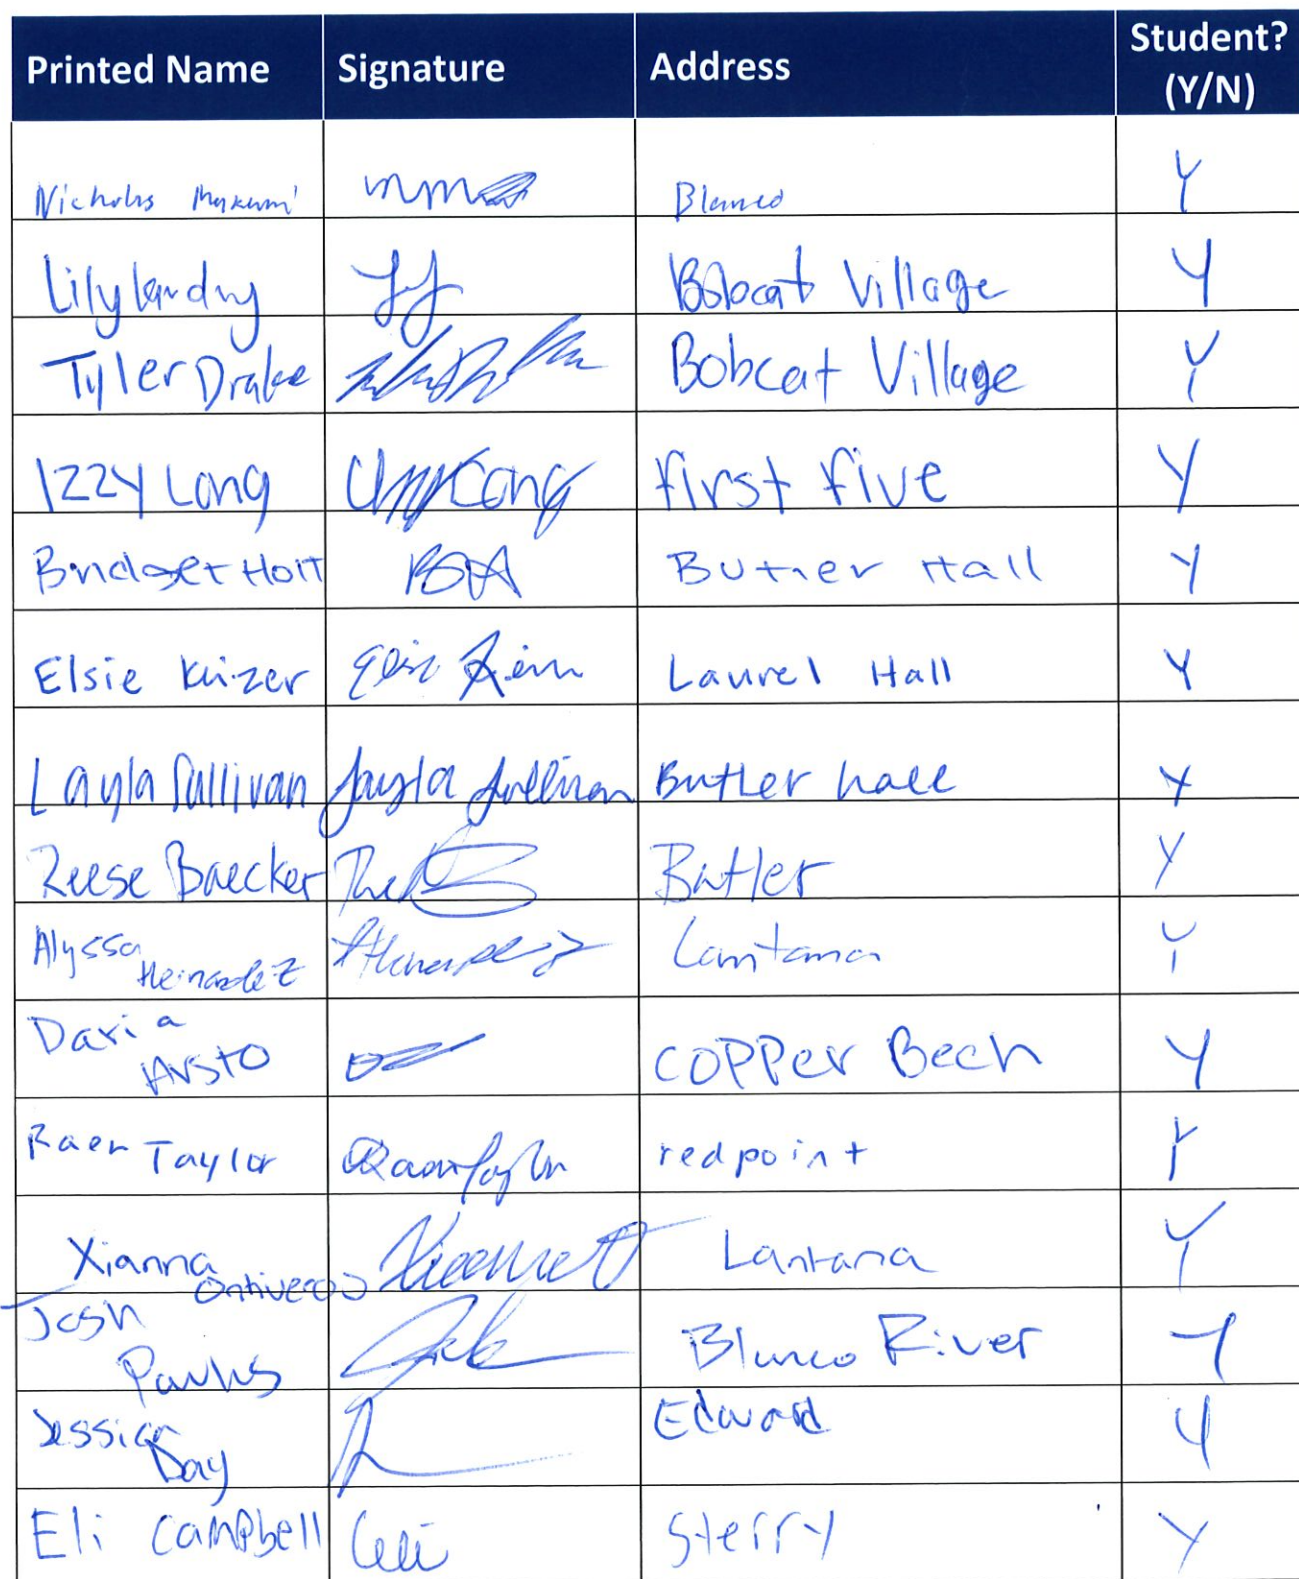 Printed Name Signature Address Student? (Y/N)
Nicholas Blanco Y
Lily Landry Bobcat Village Y
Tyler Drake Bobcat Village Y
Izzy Long first five Y
Bridget Hoit Butler Hall Y
Elsie Keizer Laurel Hall Y
Layla Sullivan Layla Sullivan Butler hall Y
Reese Baecker Butler Y
Alyssa Hernandez Lantana Y
Daria COPPer Bech Y
Raen Taylor redpoint Y
Xianna Ontiveros Lantana Y
Josh Blanco River Y
Jessica Day Edward Y
Eli Campbell Sterry Y